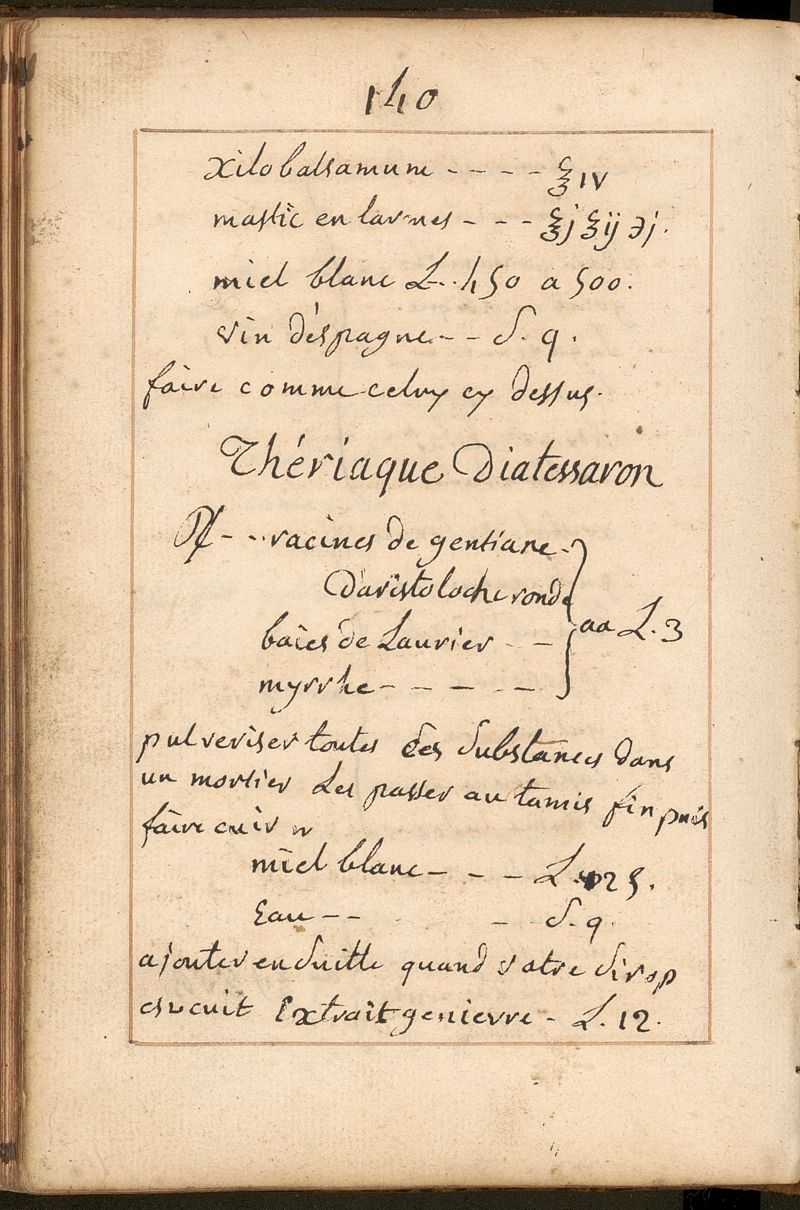 140
xilobalsamum - - - - ℥ IV
mastic en larmes - - - ℥j ℥ij ℈j.
miel blanc L.. 450 a 500.
vin d'éspagne - - S. q.
faire comme celuy cy dessus.
Thériaque Diatessaron
♃ - - racines de gentiane -
D'aristoloche ronde
baies de Laurier - - aa L. 3
myrrhe - - - - -
pulveriser toutes ces substances dans
un mortier Les passer au tamis fin puis
faire cuir
miel blanc - - - L. 25.
Eau - - - S. q.
ajouter en suitte quand votre sirop
est cuit Extrait genievre - L. 12.